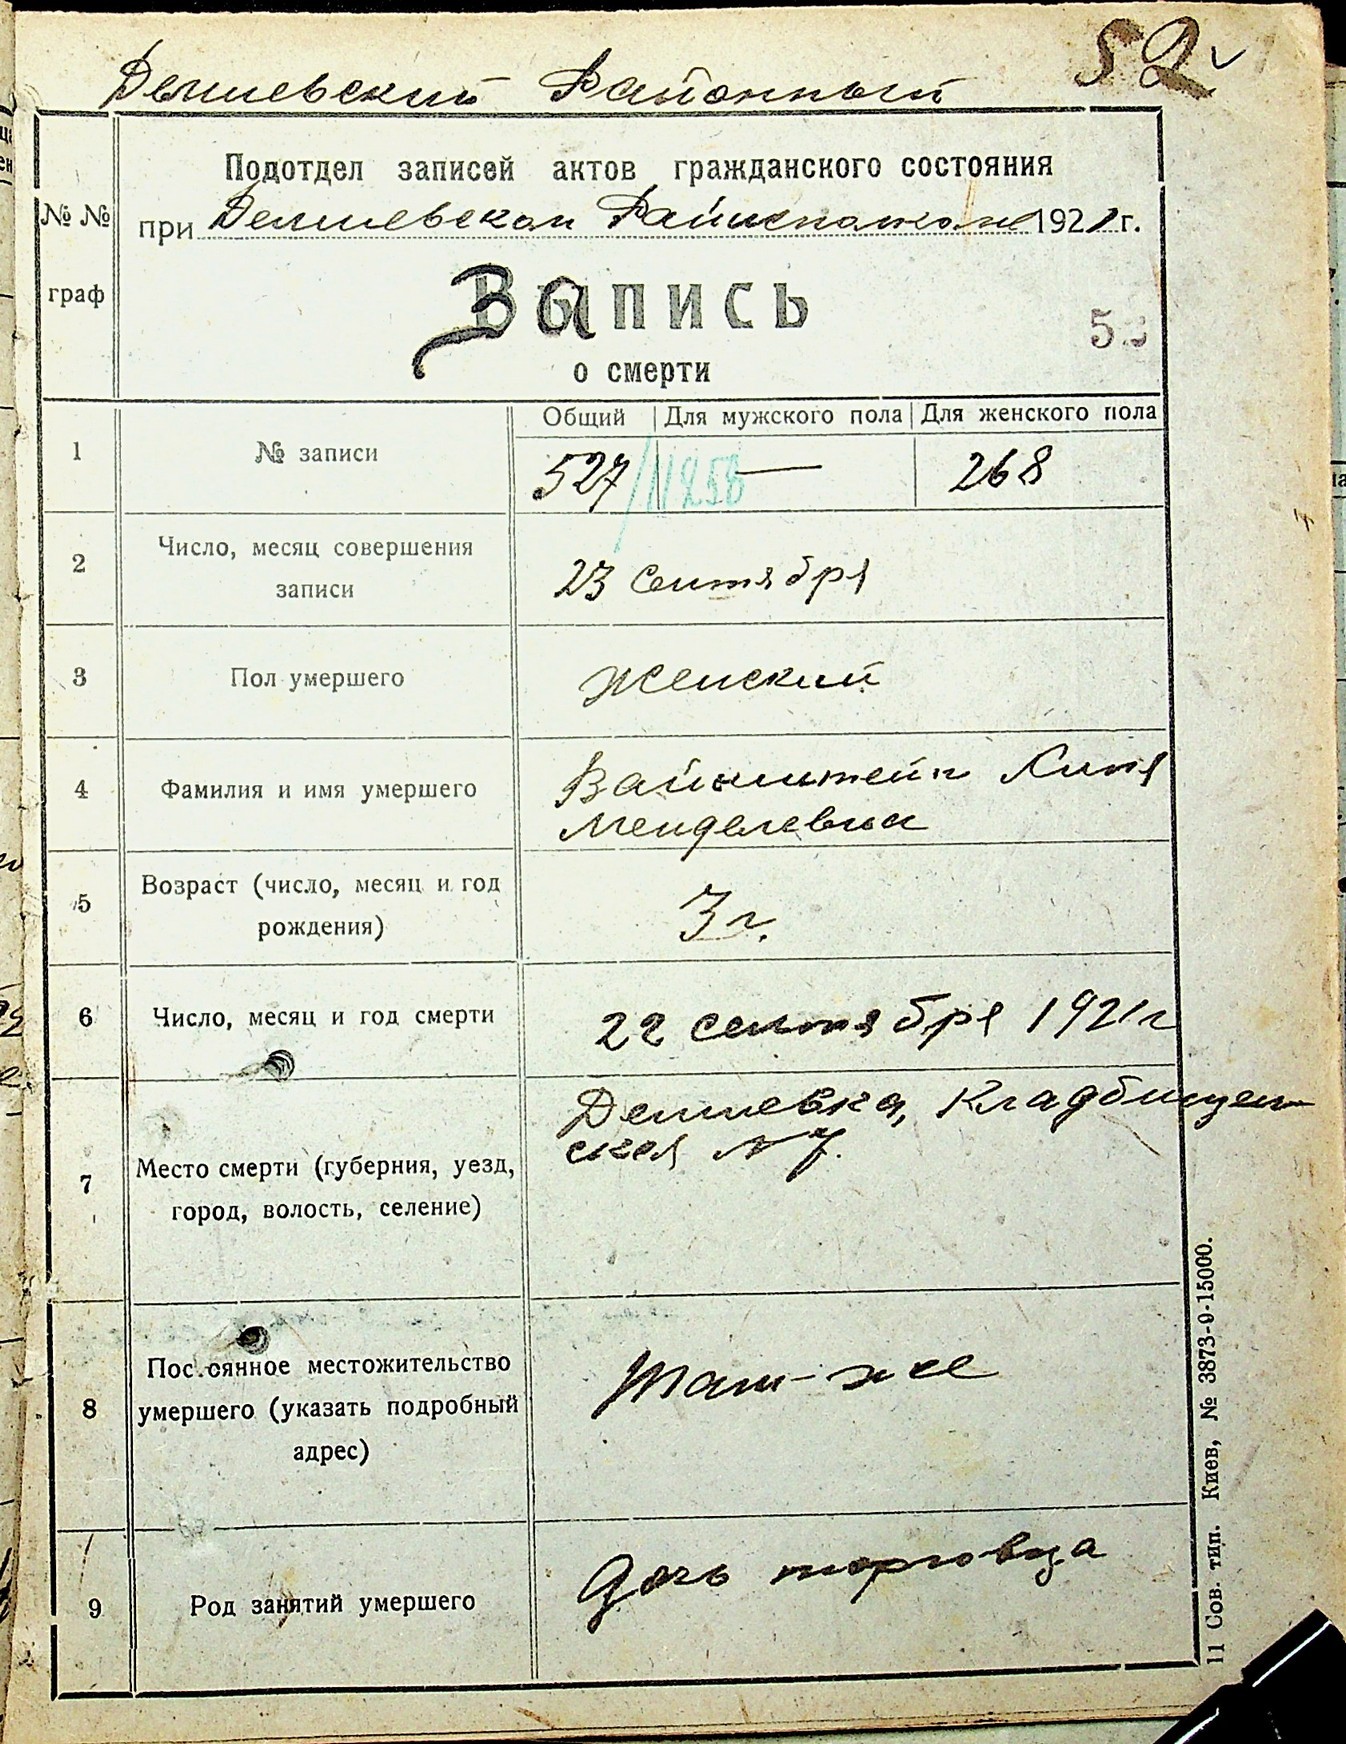 52
Демиевский Районный
Подотдел записей актов гражданского состояния
№ № граф
при Демиевском Райисполкоме 1921 г.
Запись
52
о смерти
Общий Для мужского пола Для женского пола
1 № записи 527 /11258 — 268
2 Число, месяц совершения
записи
23 Сентября
3 Пол умершего Женский
4 Фамилия и имя умершего
Вайнштейн Хиня
Менделевна
5 Возраст (число, месяц и год
рождения)
3 г.
6 Число, месяц и год смерти 22 сентября 1921 г
7 Место смерти (губерния, уезд,
город, волость, селение)
Демиевка, Кладбищен-
ская № 7.
8 Постоянное местожительство
умершего (указать подробный
адрес)
Там-же
9 Род занятий умершего Дочь торговца
11 Сов. тип. Киев, № 3873-9-15000.